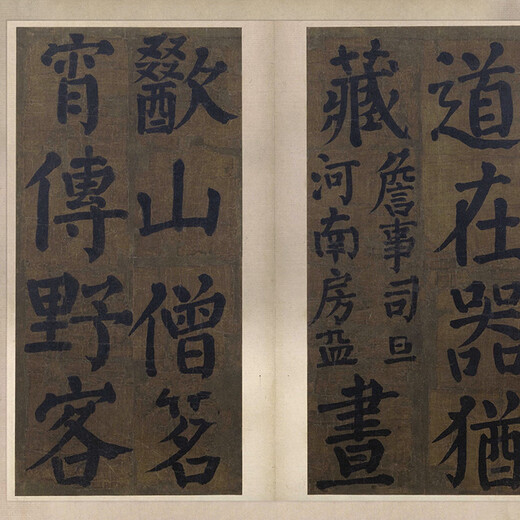 道在器猶
藏
詹事司旦
河南房益
晝
歠山僧茗
宵傳野客